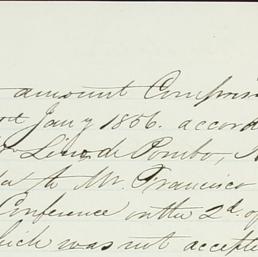 amount Compromis
Jany 1856. accord
Lino de Pombo,
to Mr. Francisco
Conference on the 2d of
which was not accepte